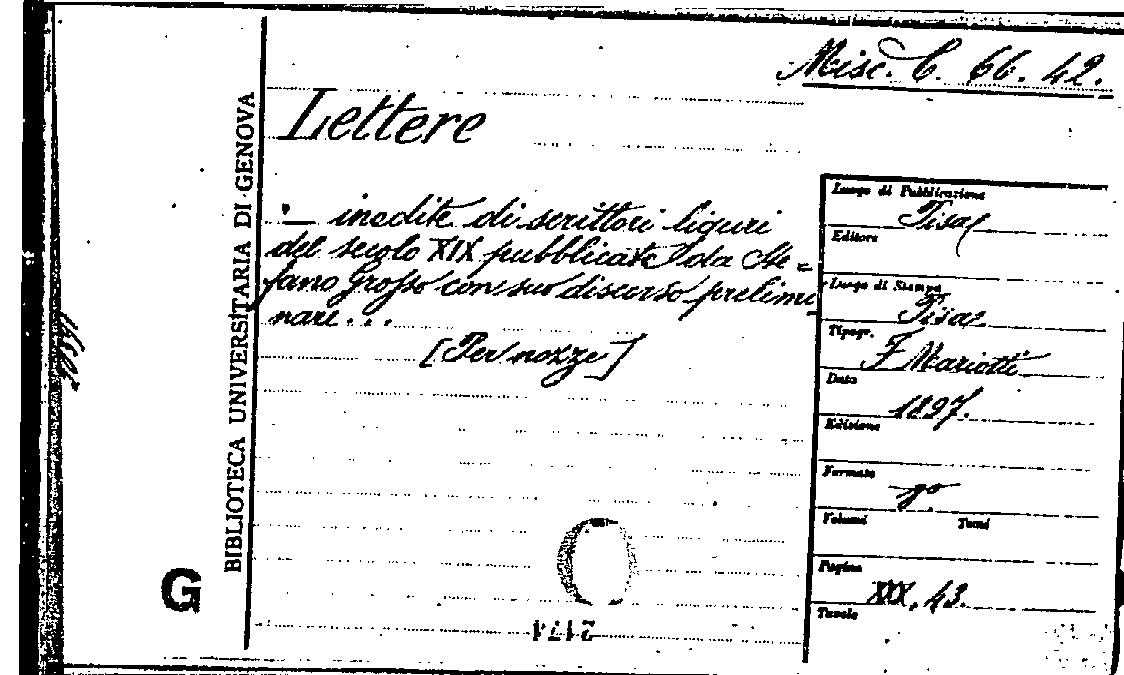 Misc. C. 66. 42.
Lettere
— inedite di scrittori liguri
del secolo XIX pubblicate da Ste=
fano Grosso con suo discorso prelimi
nare...
[Per nozze]
BIBLIOTECA UNIVERSITARIA DI GENOVA
G
Luogo di Pubblicazione
Pisa
Editore
Luogo di Stampa
Pisa
Tipogr.
F. Mariotti
Data
1897.
Edizione
Formato
8°
Volumi Tomi
Pagine
XXX, 43.
Tavole